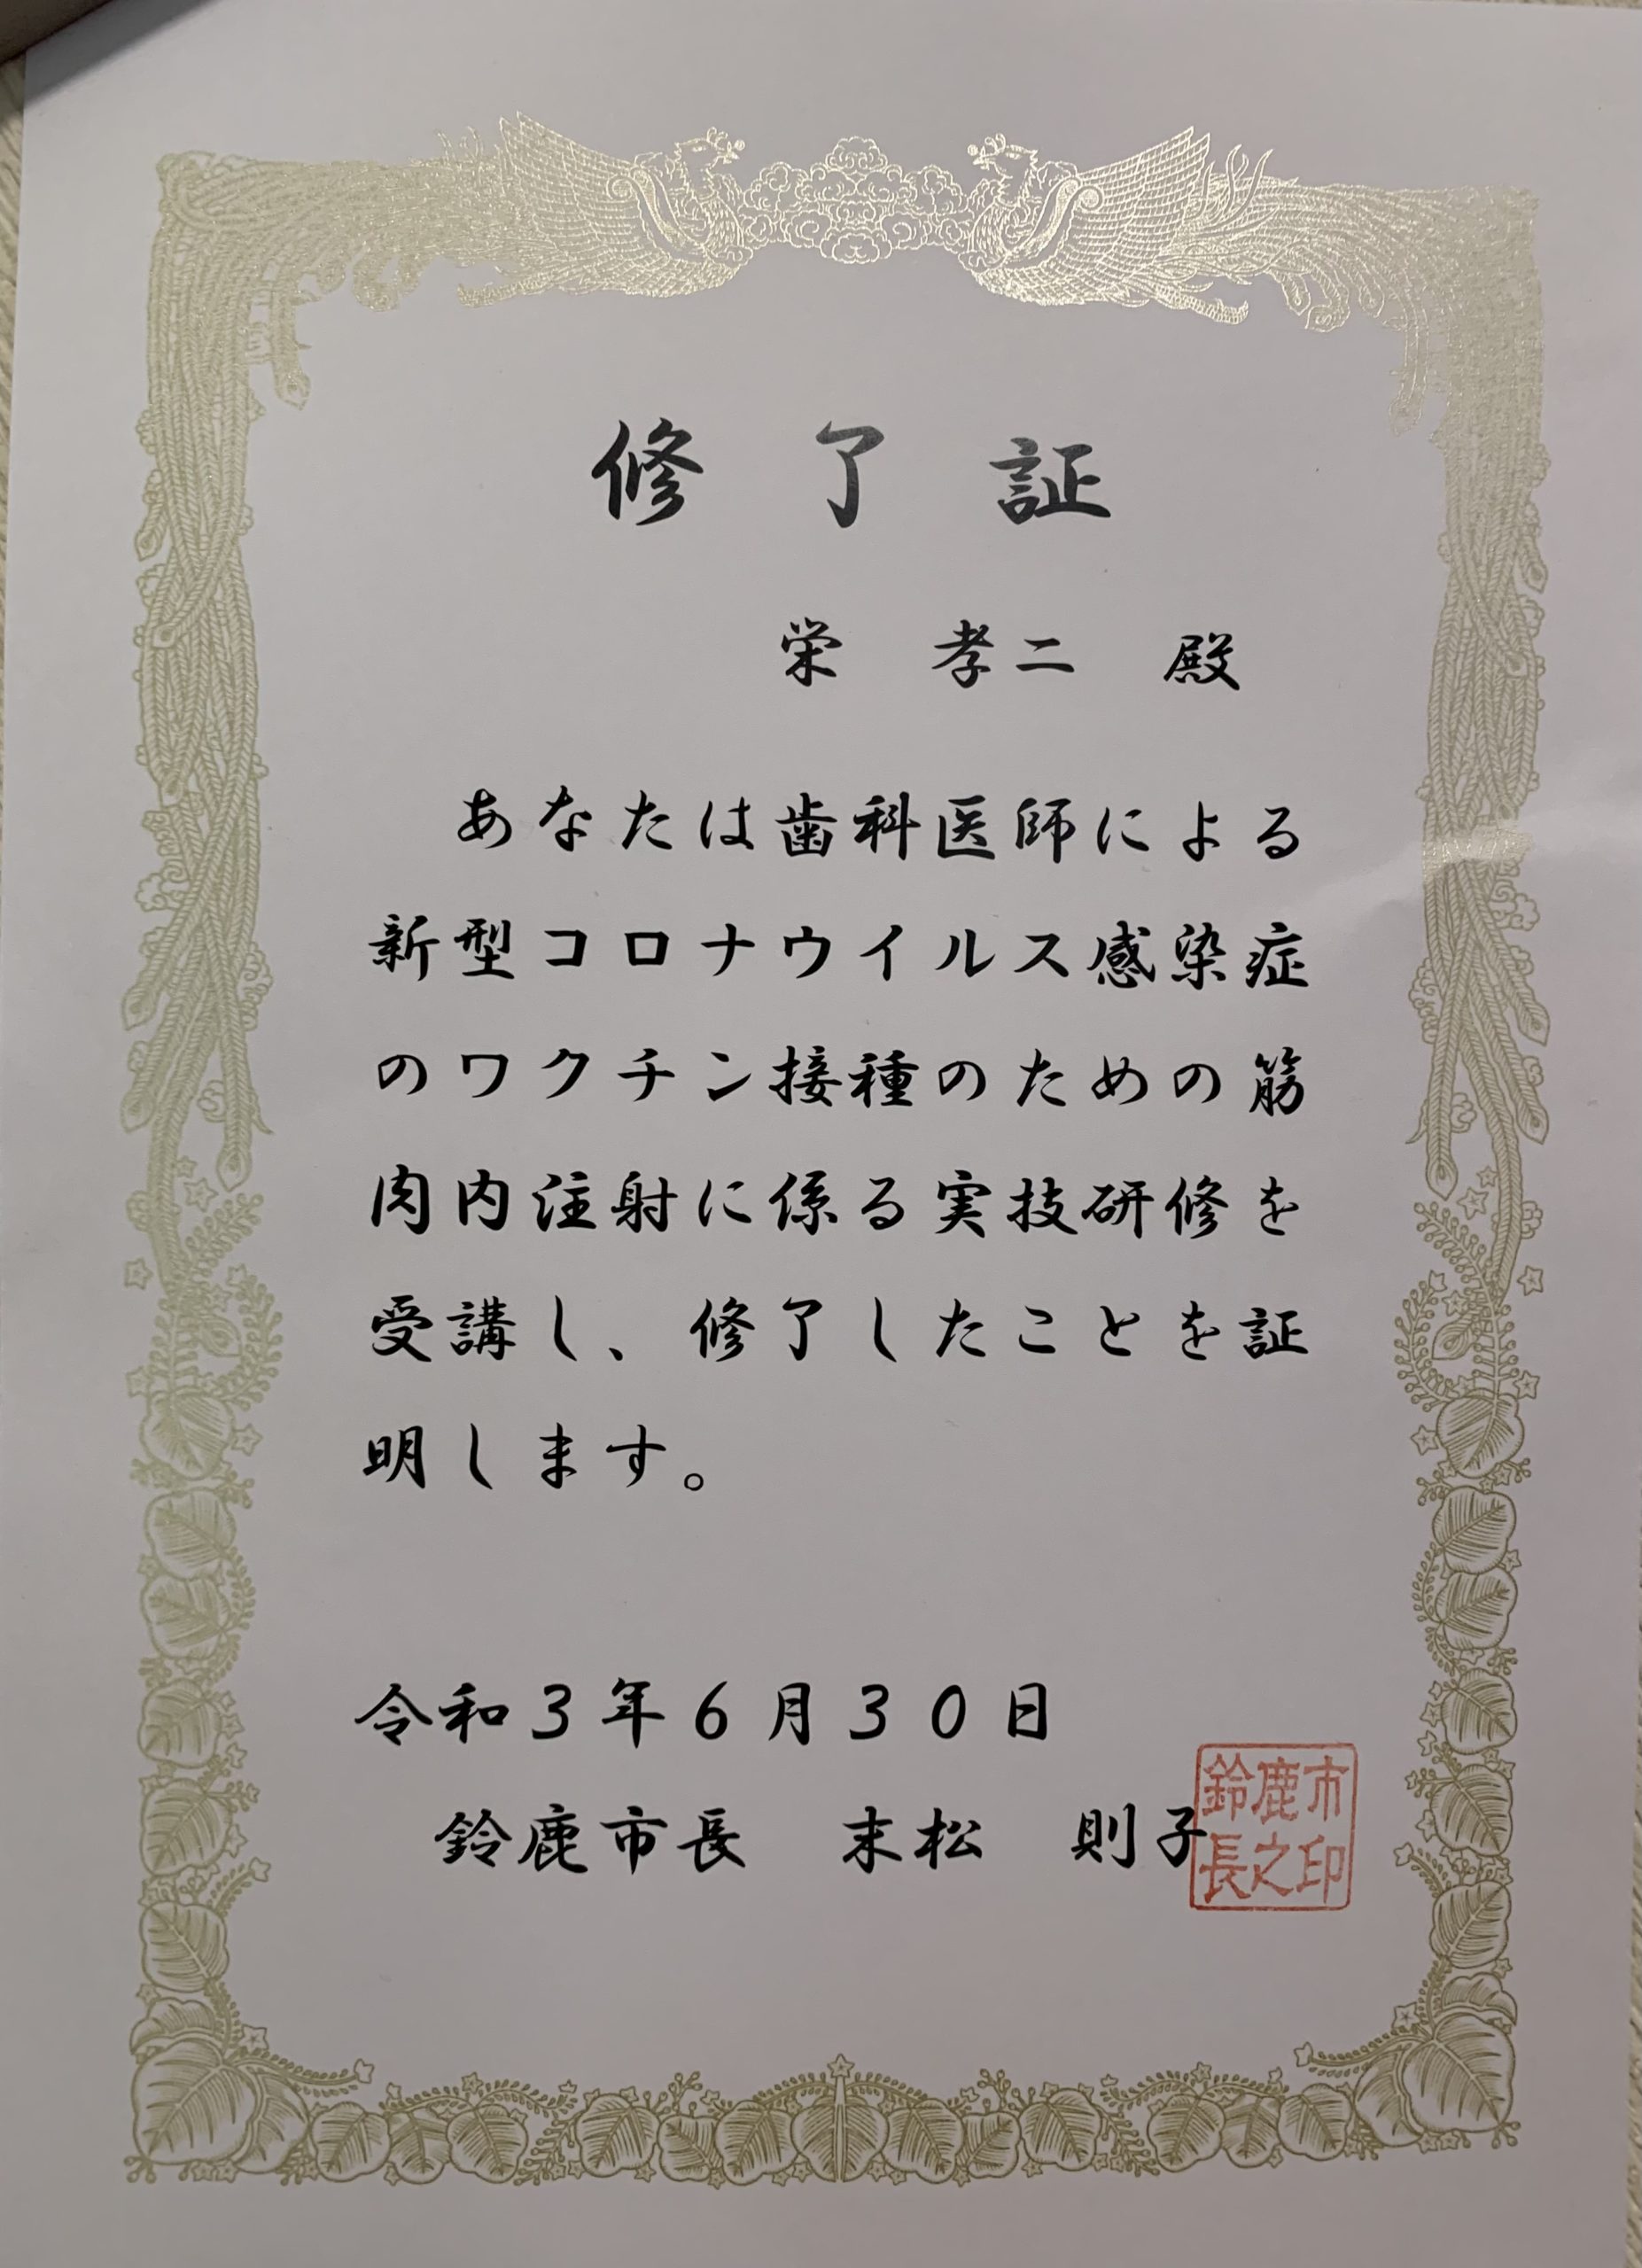 修了証
栄　孝二　殿
あなたは歯科医師による
新型コロナウイルス感染症
のワクチン接種のための筋
肉内注射に係る実技研修を
受講し、修了したことを証
明します。
令和３年６月３０日
鈴鹿市長　末松　則子
鈴鹿市
長之印